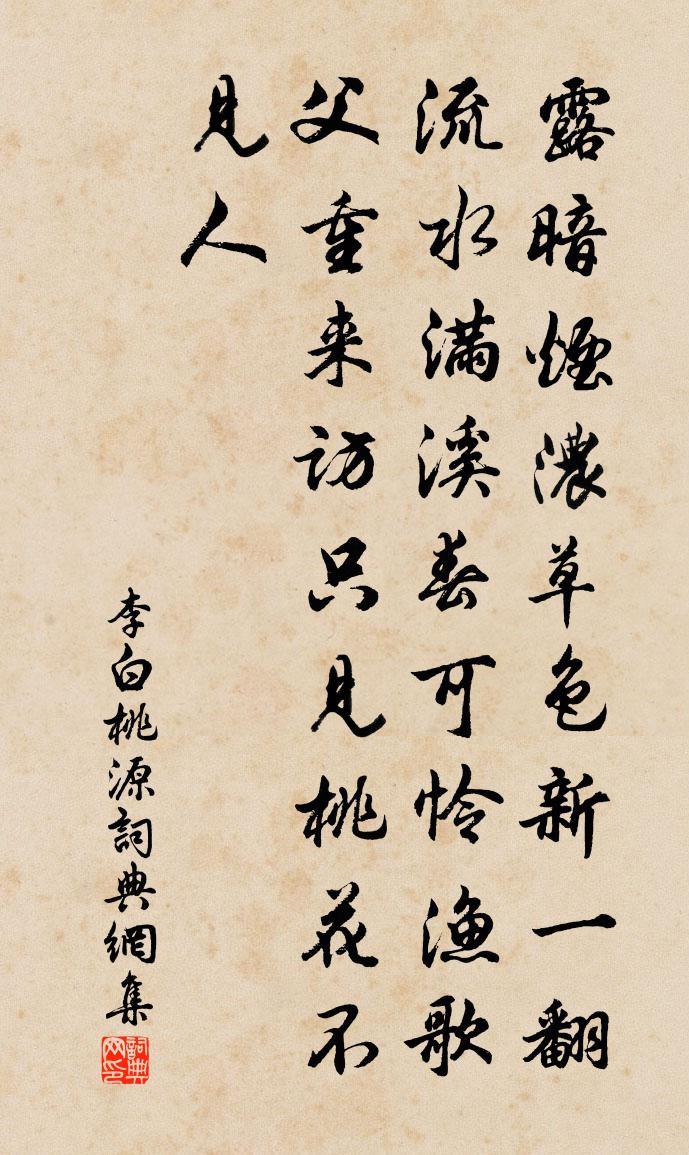 露暗煙濃草色新一翻
流水滿溪春可怜漁歌
父重来訪只見桃花不
見人
李白桃源詞典網集
詞典网印